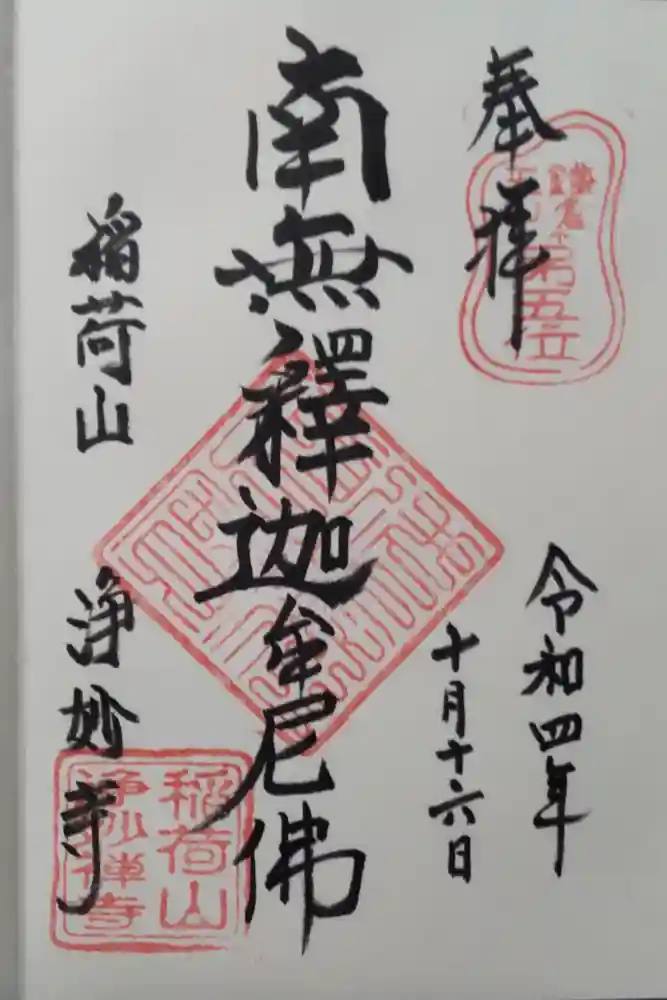 奉拝
令和四年
十月十六日
南無釋迦牟尼佛
稲荷山
浄妙寺
第五位
稲荷山
浄妙禅寺